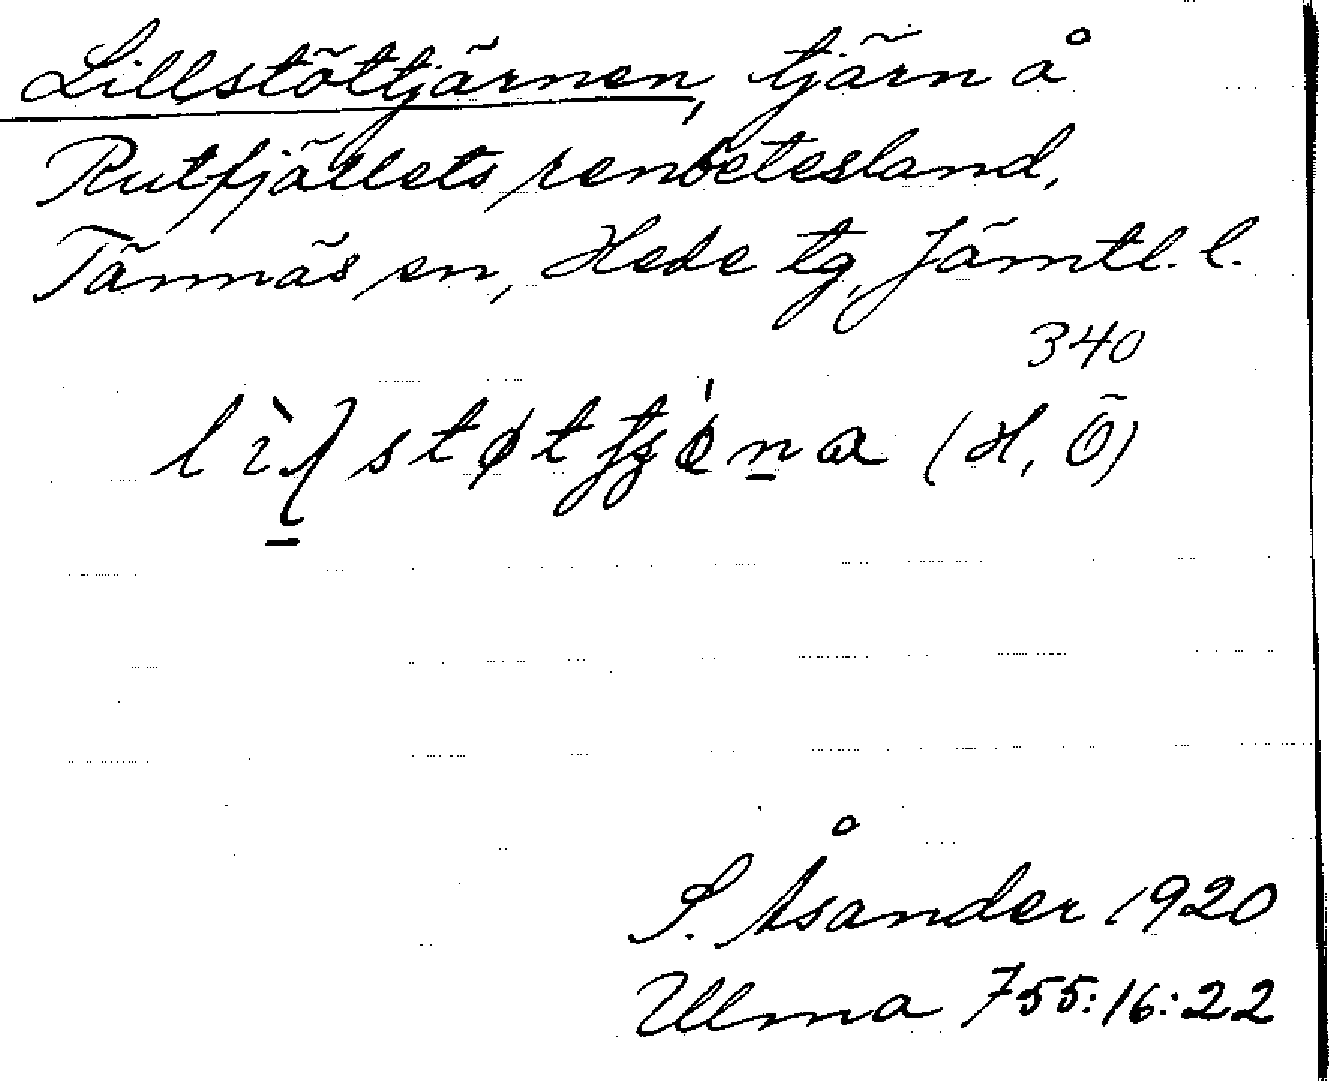 Lillstöttjärnen, tjärn å
Rutfjällets renbetesland,
Tännäs sn, Hede tg, Jämtl. l.
340
(H, Ö)
S. Åsander 1920
Ulma 755:16:22